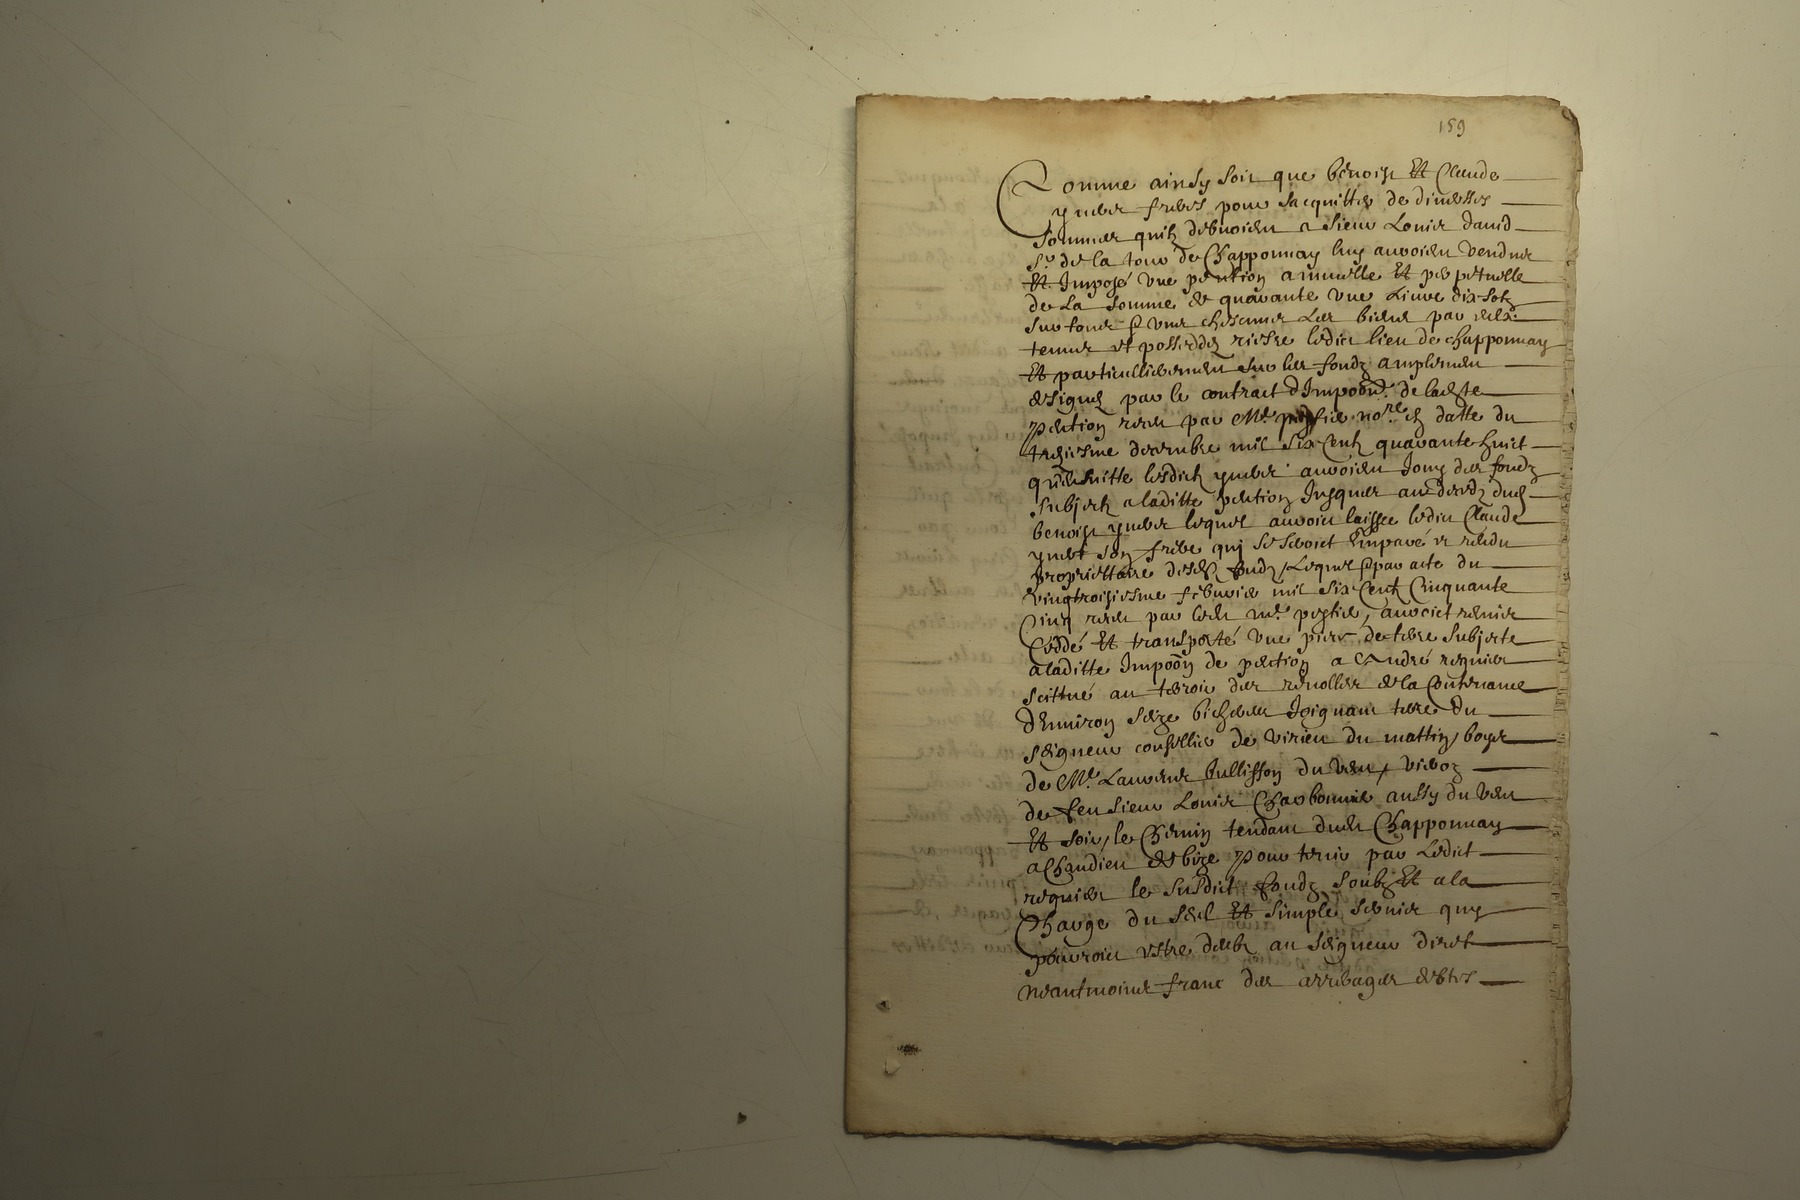 159
Comme ainsy soit que benoist Et Claude
ymber freres pour sacquitter de diverses
sommes quilz debvoient a sieur Louis david
Sr. de la tour de Chapponnay luy auroient vendue
Et Imposé une pention annuelle Et perpetuelle
de La somme de quarante une Livre dix solz
sur tous un chascuns Les biens par
tenus et possedez riesre ledict lieu de chapponnay
Et particullierement sur les fondz amplement
designez par le contract d'Impoon. de ladte
pention receu par Me. nore. en datte du
treziesme decembre mil six Centz quarante huict
qu'ensuitte lesdictz ymber auroient Jouy des fondz
subjectz a laditte pention Jusques au decedz dud
benoist ymber lequel auroit laissee ledict Claude
ymbert son frere qui se seroict Emparé et rendu
proprietaire desd fondz, Lequel par acte du
vingtroisiesme febvrier mil six Centz Cinquante
Cinq receu par led me. auroict remis
Ceddé Et transporté une piece de terre subjecte
a laditte Impoon de pention a André regnier
scittué au terroir des revolles de la Contenance
d'Environ seize bicherees Joignant terre du
seigneur conseillier de virieu du mattin, boys
de Me. Laurens bullisson du vent, vieroz
de feu sieur Louis Charbonnie aussy du vent
Et soir, le Chemin tendant dud Chapponnay
a Chandieu de bize pour tenir par Ledict
regnier le susdict fondz soubz Et a la
Charge du seul Et simple servis quy
pourroict estre deubz au seigneur direct
neantmoins franc des arrerages debtes